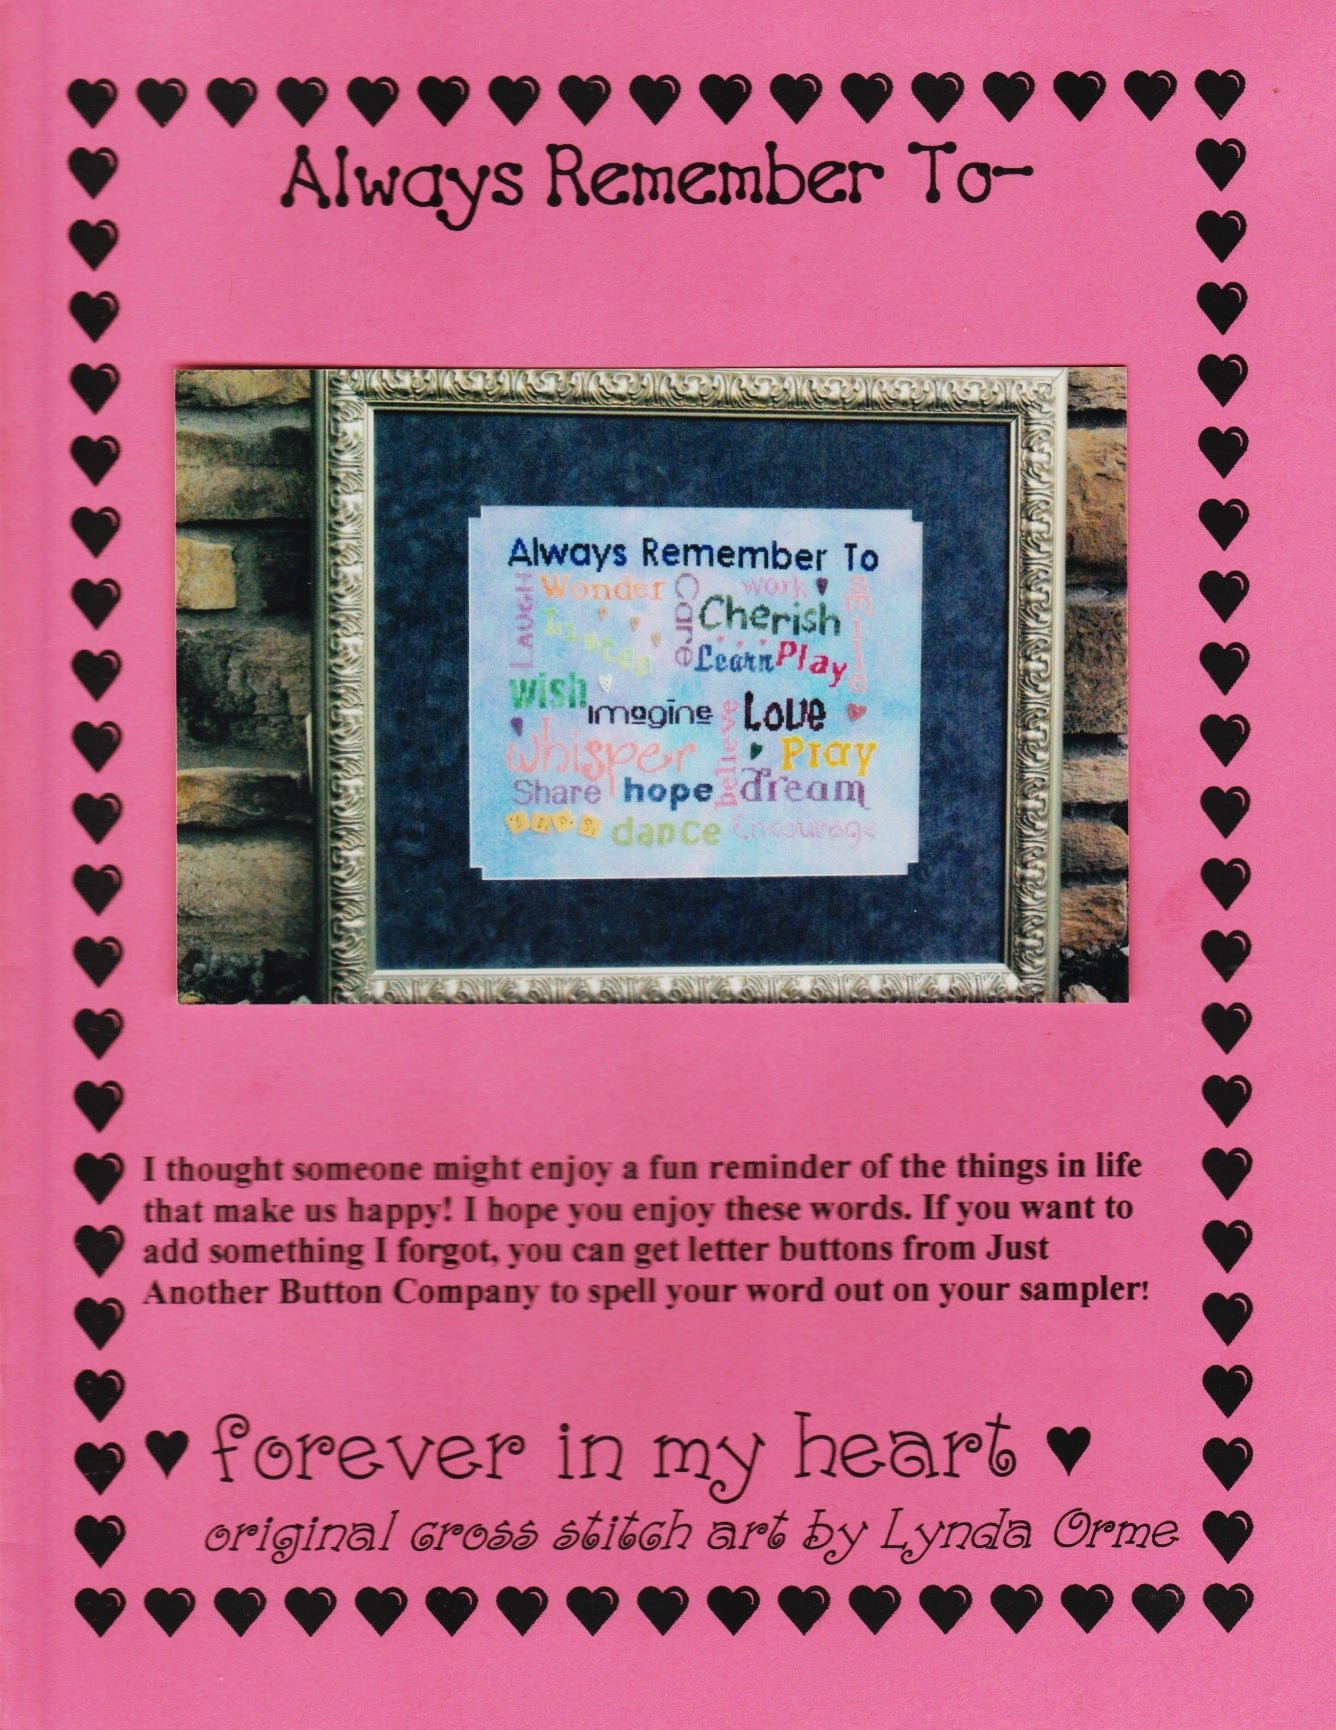 Always Remember To-
Always Remember To
Laugh
Wonder
Care
work
Smile
Listen
Cherish
Learn
Play
wish
imagine
believe
Love
whisper
Pray
Share
hope
dream
sing
dance
Encourage
I thought someone might enjoy a fun reminder of the things in life
that make us happy! I hope you enjoy these words. If you want to
add something I forgot, you can get letter buttons from Just
Another Button Company to spell your word out on your sampler!
forever in my heart
original cross stitch art by Lynda Orme